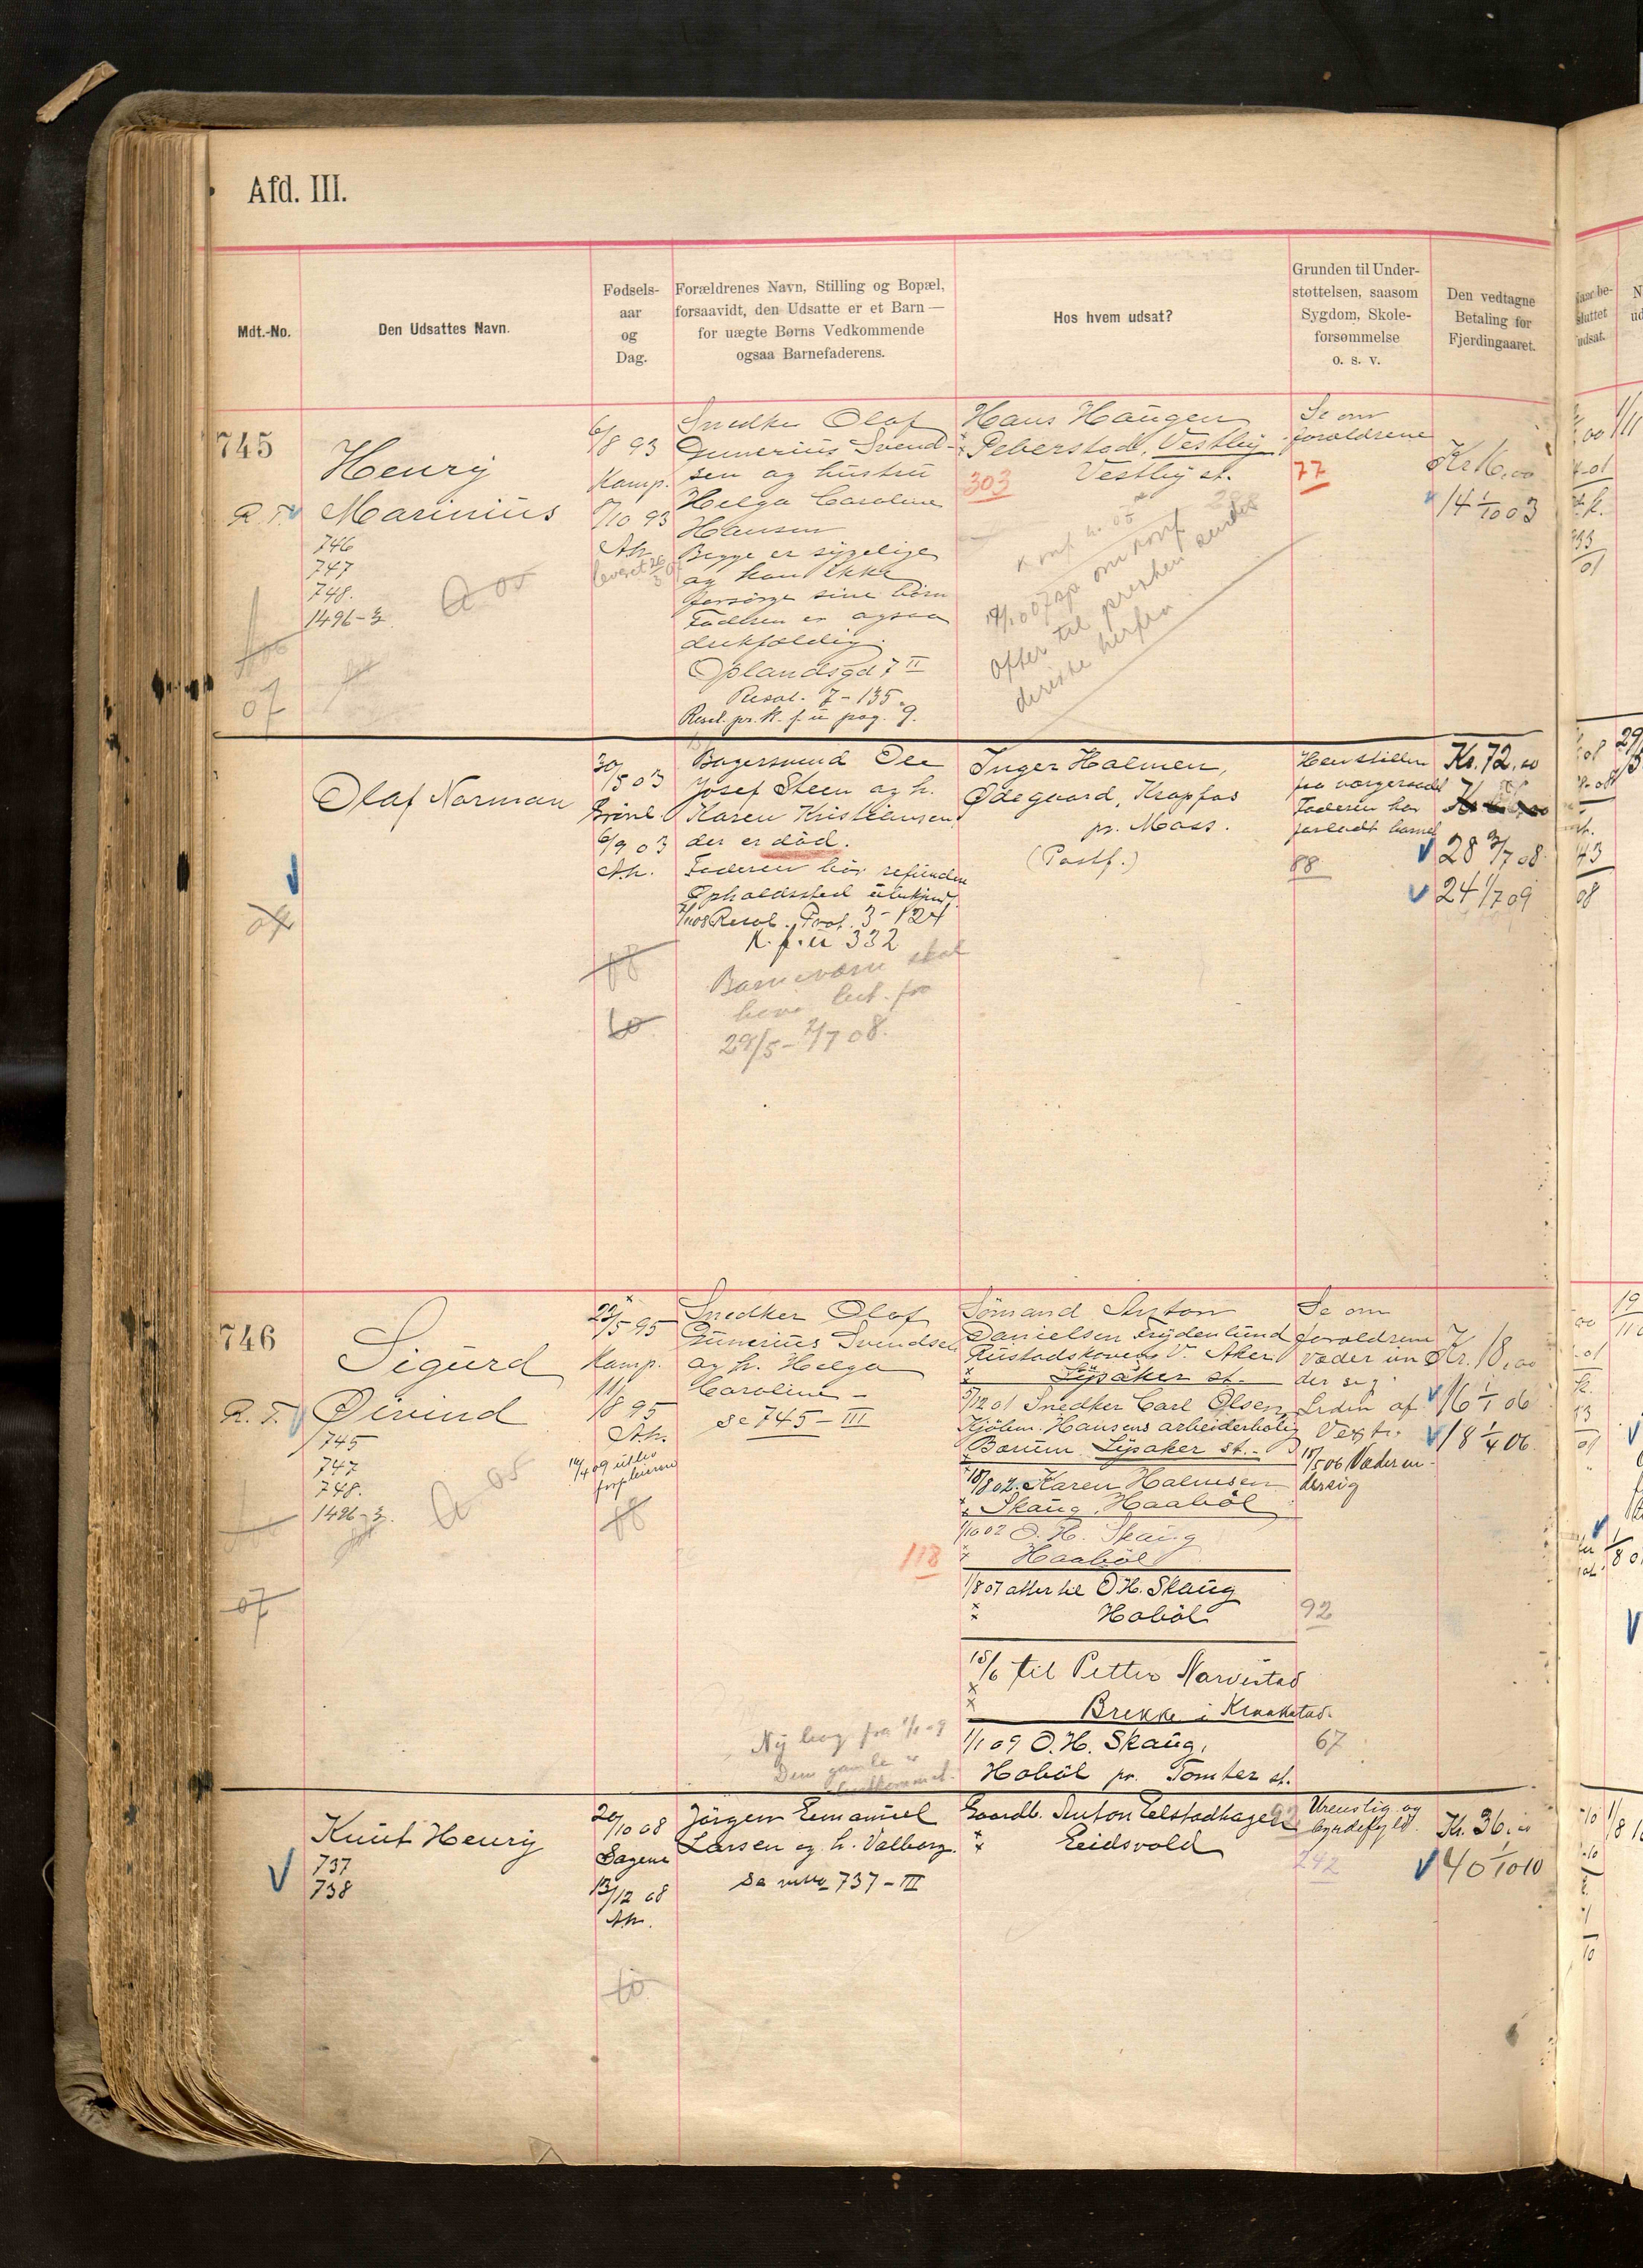 Afd. III.
Mdt.-No.
Den Udsattes Navn.
Fødsels-
aar
og
Dag.
Forældrenes Navn, Stilling og Bopæl,
forsaavidt, den Udsatte er et Barn —
for uægte Børns Vedkommende
ogsaa Barnefaderens.
Hos hvem udsat?
Grunden til Under-
støttelsen, saasom
Sygdom, Skole-
forsømmelse
o. s. v.
Den vedtagne
Betaling for
Fjerdingaaret.
745
R. T.
Henry
Marinius
746
747
748.
1496-3
A 05
07
6/8 93
Kamp.
/10 93
A.h.
Snedker Olaf
Gunerius Svend-
sen og hustru
Helga Caroline
Hansen
Begge er sygelige
og kan ikke
forsørge sine børn
Faderen er ogsaa
drikfældig.
Oplandsgd 7 II
Resol. 7-135.
Resol. pr. K. f. u pag. 9.
Hans Haugen
Peberstad, Vestby
Vestby st.
303
288
om konf
til presten sendes
herfra
Se om
forældrene
77
Kr 16,00
14 1/10 03
Olaf Norman
30/5 03
6/9 03
A.h.
08
10
Bagersvend Ole
Josef Steen og h.
Karen Kristiansen
der er død.
Faderen bør refundere
Opholdssted ubekjendt.
Resol. Prot. 3-124
K. f. u 332
Barneværn skal
have bet. fra
29/5 - 2/7 08.
Inger Halmen,
Ødegaard, Krapfos
pr. Moss.
(Postf.)
Henstillen
fra vergeraadet
Faderen har
forladt barnet
88
Kr. 72,00
28 3/7 08
24 1/7 09
746
R. T.
Sigurd
Øivind
745
747
748.
1496-3.
A 05
07
23/5 95
Kamp.
11/8 95
A.h.
08
Snedker Olaf
Gunerius Svendsen
og h. Helga
Caroline -
se 745 - III
118
Ny bog fra 1/1-9
Den gamle er
bortkommet.
Sömand Anton
Danielsen Frydenlund
Rustadskoven V. Aker
Lysaker st.
/12 01 Snedker Carl Olsen,
Hjölm. Hansens arbeiderbolig
Bærum Lysaker st.
18/8 02. Karen Halmsen
Skaug, Haaböl
1/10 02 O. H. Skaug
Haaböl
1/8 07 atter til O. H. Skaug
Haböl
15/6 til Petter Narvestad
Brekke i Kraakstad.
1/1 09 O. H. Skaug,
Haböl pr. Tomter st.
Se om
forældrene
Væder un
der sig.
Lider af
15/5 06 Væder un-
dersig
92
67
Kr. 18,00
16 1/1 06
18 1/4 06
Knut Henry
737
738
20/10 08
Sagene
13/12 08
A.h.
10
Jörgen Emanuel
Larsen og h. Valborg.
Se 737 - III
Gaardb. Anton Eelstadhagen
Eidsvold
Urenslig og
byrdefyld.
242
Kr. 36,00
40 1/10 10